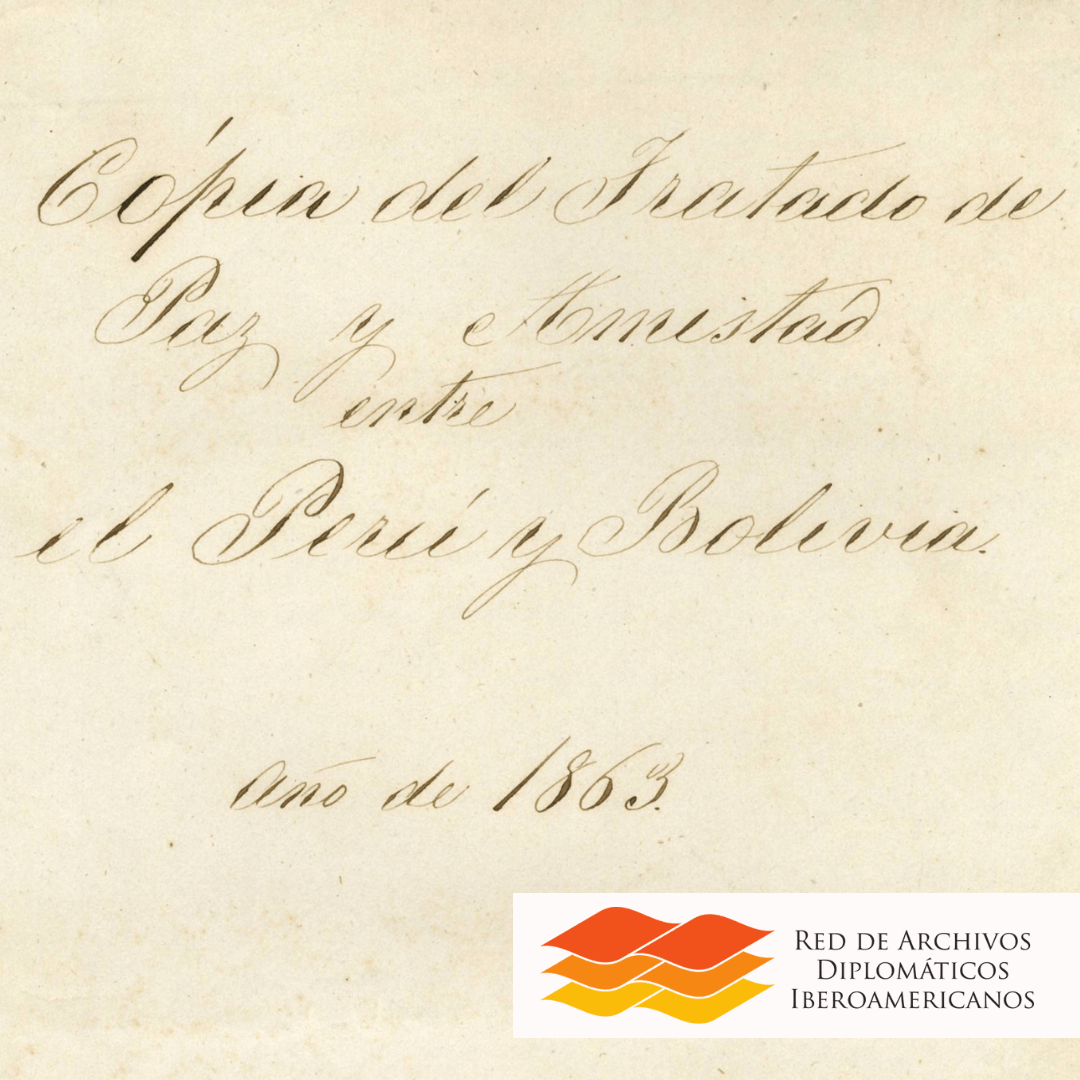 Cópia del Tratado de
Paz y Amistad
entre
el Perú y Bolivia.
Año de 1863.
RED DE ARCHIVOS
DIPLOMÁTICOS
IBEROAMERICANOS